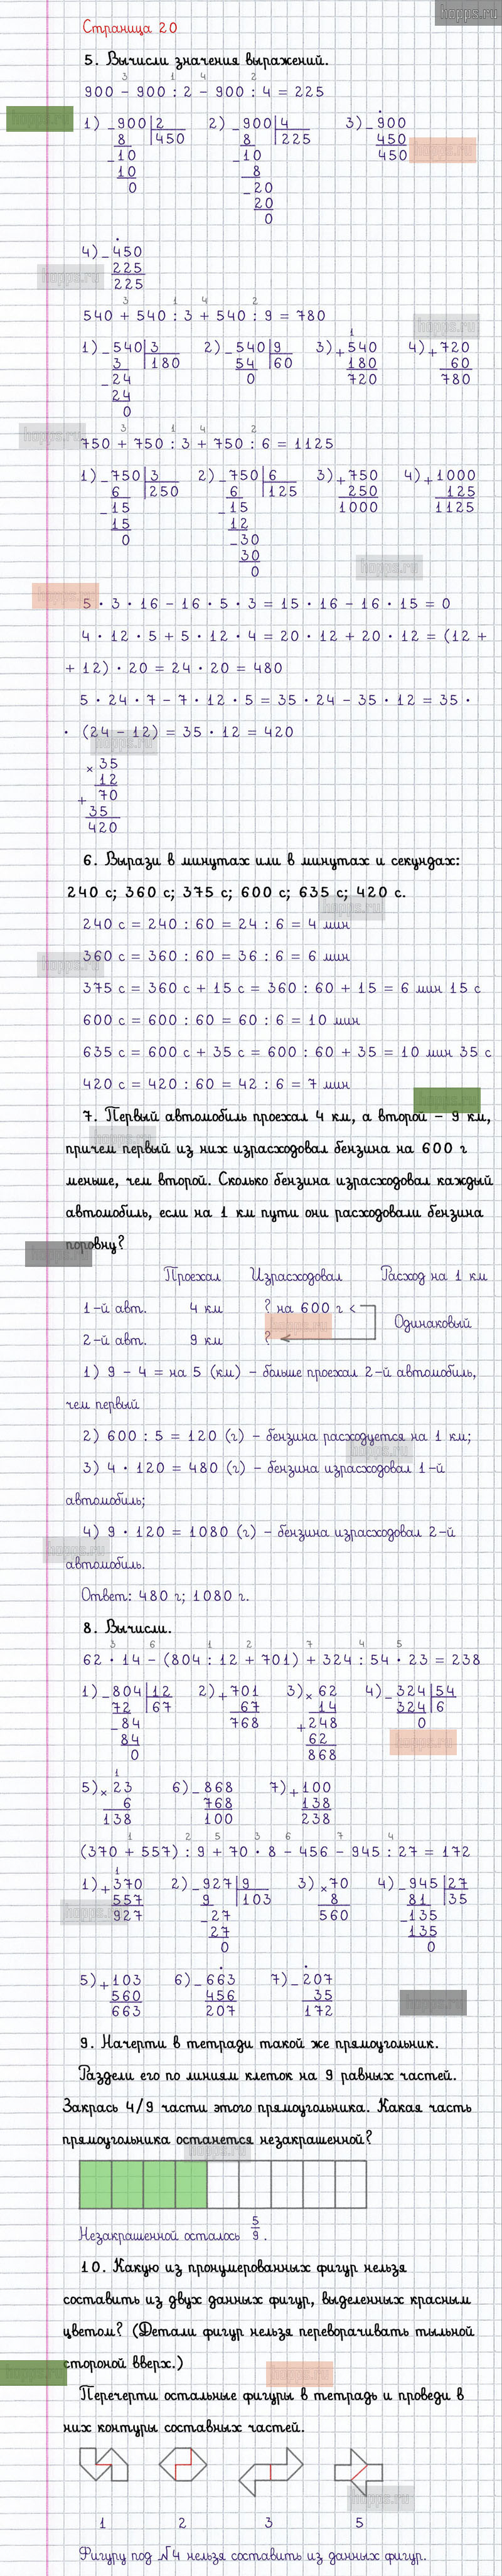 hopps.ru
Страница 20
5. Вычисли значения выражений.
3 1 4 2
900 − 900 : 2 − 900 : 4 = 225
1) −900|2 2) −900|4 3) −900
8 450 8 225 450
−10 −10 450
10 8
0 −20
20
0
4) −450
225
225
3 1 4 2
540 + 540 : 3 + 540 : 9 = 780
1) −540|3 2) −540|9 3) +540 4) +720
3 180 54 60 180 60
−24 0 720 780
24
0
3 1 4 2
750 + 750 : 3 + 750 : 6 = 1125
1) −750|3 2) −750|6 3) +750 4) +1000
6 250 6 125 250 125
−15 −15 1000 1125
15 12
0 −30
30
0
5 · 3 · 16 − 16 · 5 · 3 = 15 · 16 − 16 · 15 = 0
4 · 12 · 5 + 5 · 12 · 4 = 20 · 12 + 20 · 12 = (12 +
+ 12) · 20 = 24 · 20 = 480
5 · 24 · 7 − 7 · 12 · 5 = 35 · 24 − 35 · 12 = 35 ·
· (24 − 12) = 35 · 12 = 420
× 35
12
+ 70
35
420
6. Вырази в минутах или в минутах и секундах:
240 с; 360 с; 375 с; 600 с; 635 с; 420 с.
240 с = 240 : 60 = 24 : 6 = 4 мин
360 с = 360 : 60 = 36 : 6 = 6 мин
375 с = 360 с + 15 с = 360 : 60 + 15 = 6 мин 15 с
600 с = 600 : 60 = 60 : 6 = 10 мин
635 с = 600 с + 35 с = 600 : 60 + 35 = 10 мин 35 с
420 с = 420 : 60 = 42 : 6 = 7 мин
7. Первый автомобиль проехал 4 км, а второй – 9 км,
причем первый из них израсходовал бензина на 600 г
меньше, чем второй. Сколько бензина израсходовал каждый
автомобиль, если на 1 км пути они расходовали бензина
поровну?
Проехал Израсходовал Расход на 1 км
1-й авт. 4 км ? на 600 г <
Одинаковый
2-й авт. 9 км ?
1) 9 − 4 = на 5 (км) – больше проехал 2-й автомобиль,
чем первый
2) 600 : 5 = 120 (г) – бензина расходуется на 1 км;
3) 4 · 120 = 480 (г) – бензина израсходовал 1-й
автомобиль;
4) 9 · 120 = 1080 (г) – бензина израсходовал 2-й
автомобиль.
Ответ: 480 г; 1080 г.
8. Вычисли.
3 6 1 2 7 4 5
62 · 14 − (804 : 12 + 701) + 324 : 54 · 23 = 238
1) −804|12 2) +701 3) × 62 4) −324|54
72 67 67 14 324 6
−84 768 +248 0
84 62
0 868
5) × 23 6) −868 7) +100
6 768 138
138 100 238
1 2 5 3 6 7 4
(370 + 557) : 9 + 70 · 8 − 456 − 945 : 27 = 172
1) +370 2) −927|9 3) ×70 4) −945|27
557 9 103 8 81 35
927 −27 560 −135
27 135
0 0
5) +103 6) −663 7) −207
560 456 35
663 207 172
9. Начерти в тетради такой же прямоугольник.
Раздели его по линиям клеток на 9 равных частей.
Закрась 4/9 части этого прямоугольника. Какая часть
прямоугольника останется незакрашенной?
Незакрашенной осталось 5/9.
10. Какую из пронумерованных фигур нельзя
составить из двух данных фигур, выделенных красным
цветом? (Детали фигур нельзя переворачивать тыльной
стороной вверх.)
Перечерти остальные фигуры в тетрадь и проведи в
них контуры составных частей.
1 2 3 5
Фигуру под №4 нельзя составить из данных фигур.